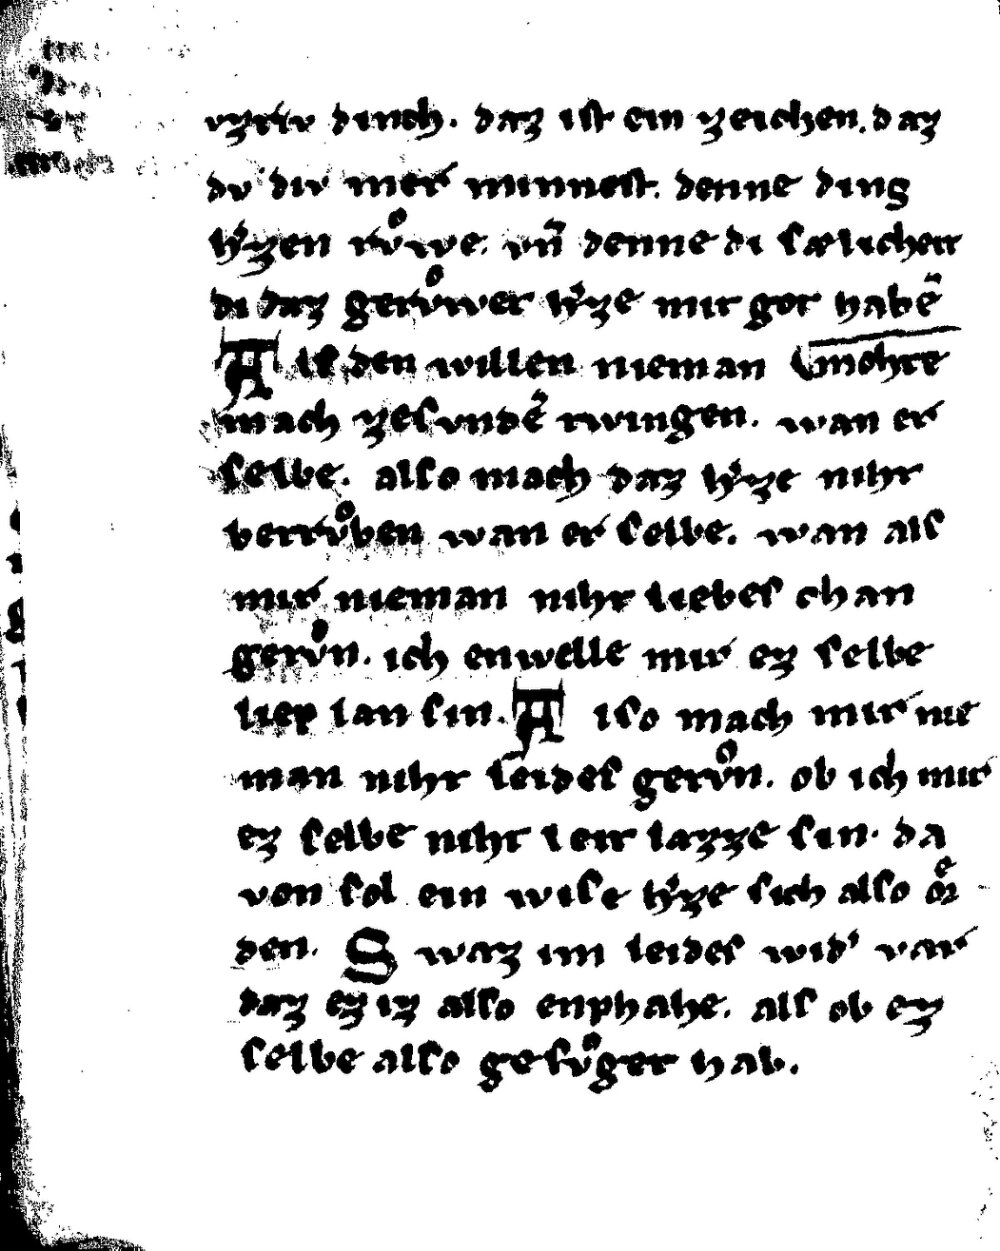 vzeriv dinch. daz ist ein zeichen. daz
dv dir mer minnest. denne dins
hˢzen rvͦwe. vn̄ denne di sælicheit
di daz gerv̊wet hˢze mit got habē
Als den willen nieman
mach zesvndē twingen. wan er
selbe. also mach daz hˢze niht
betrvͦben wan er selbe. wan als
mir nieman niht liebes chan
getvͦn. ich enwelle mir ez selbe
liep lan sin. Also mach mir nie
man niht leides getvͦn. ob ich mir
ez selbe niht leit lazze sin. da
von sol ein wise hˢze sich also oͤr
den. Swaz im leides widˢ var
daz ez iz also enphahe. als ob ez
selbe also gefvͦget hab.